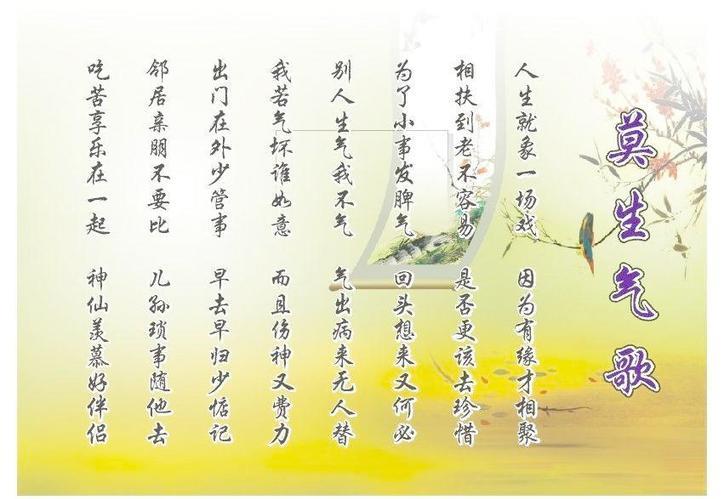 莫生气歌
人生就象一场戏 因为有缘才相聚
相扶到老不容易 是否更该去珍惜
为了小事发脾气 回头想来又何必
别人生气我不气 气出病来无人替
我若气坏谁如意 而且伤神又费力
出门在外少管事 早去早归少惦记
邻居亲朋不要比 儿孙琐事随他去
吃苦享乐在一起 神仙羡慕好伴侣